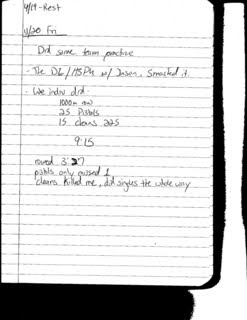 4/19 - Rest
4/20 Fri
Did some team practice
- The DL/HSPU w/ Jason. Smacked it.
- We indiv did.
1000m row
25 Pistols
15 cleans 225
9:15
rowed 3:27
pistols only missed 1
cleans killed me, did singles the whole way